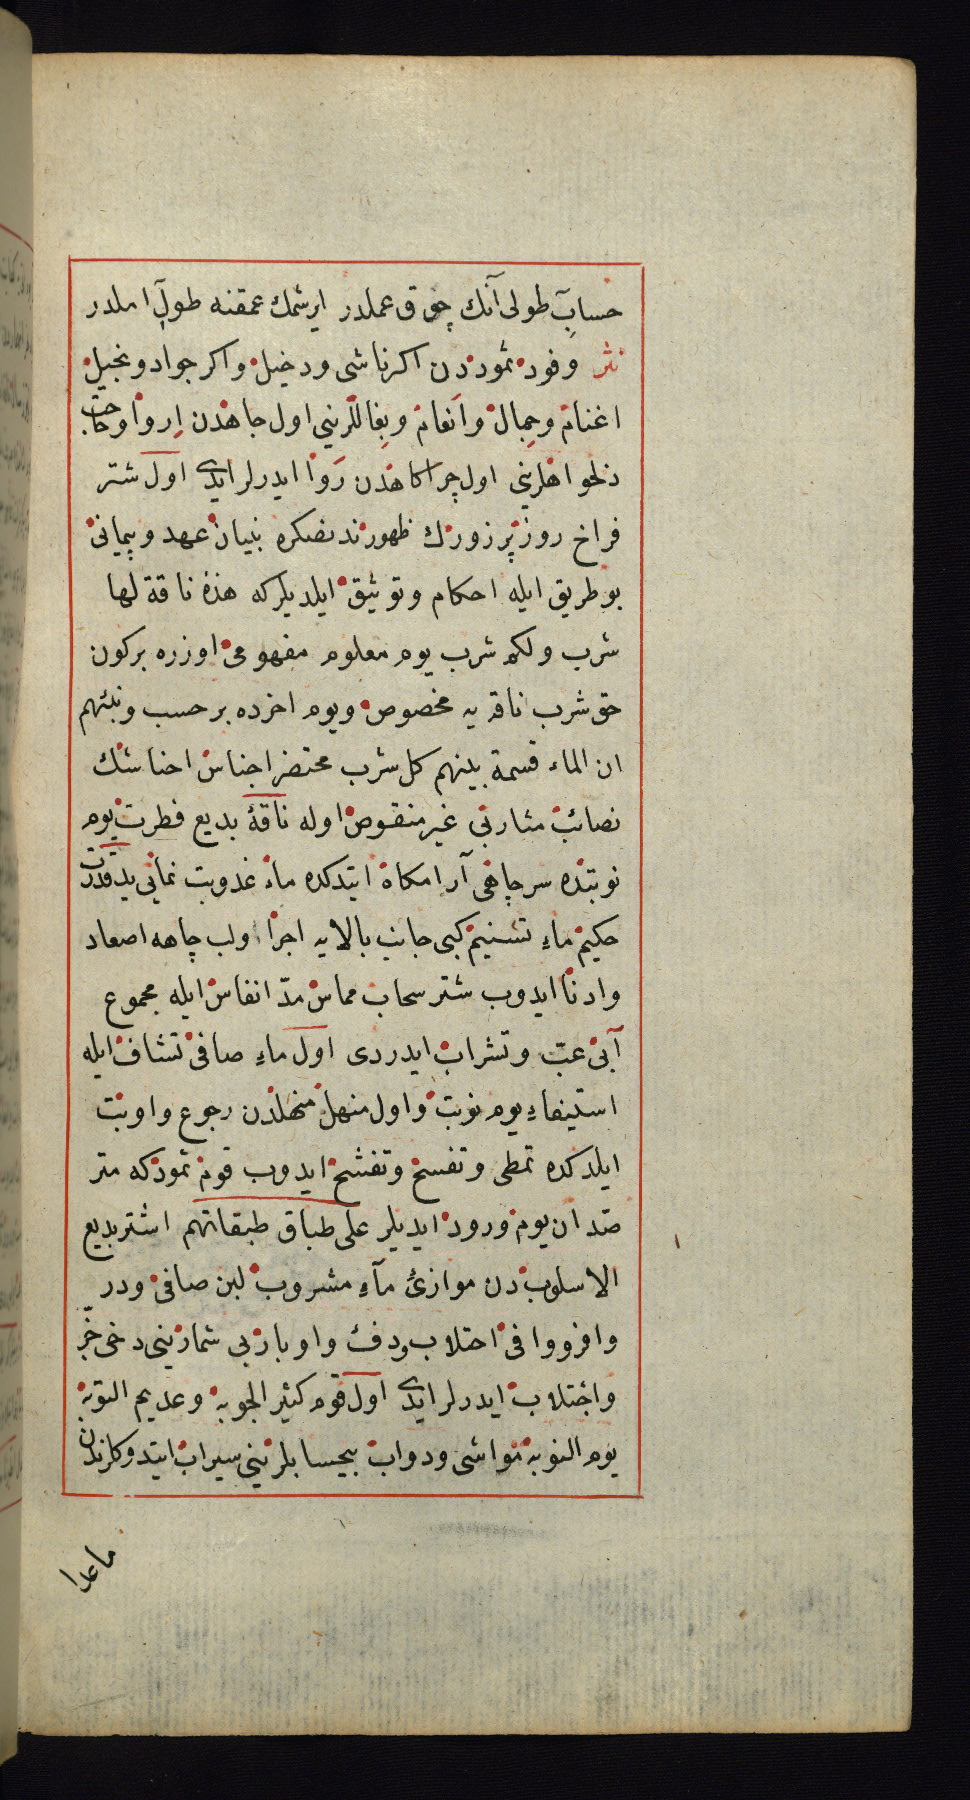 حساب طولی آنك چوق عملدر ایرشمك عمقنه طول املدر
نثر وفود ثموددن اكر ناشی ودخیل واكر جواد وبخیل
اغنام وجمال وانعام وبغاللرینی اول جاهدن اروا وحاجت
ذلخواهلرینی اول چراكاهدن روا ایدرلر ایدی اول شتر
فراخ روز پر زورك ظهورندنصكره بنیان عهد وپیمانی
بو طریق ایله احكام وتوثیق ایلدیلركه هذه ناقة لها
شرب ولكم شرب یوم معلوم مفهومی اوزره بركون
حق شرب ناقه یه مخصوص ویوم اخرده بر حسب ونبئهم
ان الماء قسمة بینهم كل شرب محتضر اجناس احناشك
نصائب مشاربی غیر منقوص اوله ناقۀ بدیع فطرت یوم
نوبتده سر چاهی آرامكاه ایتدكده ماء عذوبت نمائی ید قدرت
حكیم ماء تسنیم كبی جانب بالایه اجرا ولب چاهه اصعاد
وادنا ایدوب شتر سحاب مماس مد انفاس ایله مجموع
آبی عب وتشراب ایدردی اول ماء صافی تشاف ایله
استیفاء یوم نوبت واول منهل منهلدن رجوع واوبت
ایلدكده تمطی وتفسخ وتفشح ایدوب قوم ثمود كه متر
صدان یوم ورود ایدیلر علی طباق طبقاتهم اشتر بدیع
الاسلوبدن موازئ مآء مشروب لبن صافی ودر
وافر ووافی احتلاب ودفك واوبار بی شمارینی دخی خز
واختلاب ایدرلر ایدی اول قوم كثیر الحوبه وعدیم التوبه
یوم النوبه مواشی ودواب بیحسابلرینی سیراب ایتدوكلرندن
ماعدا